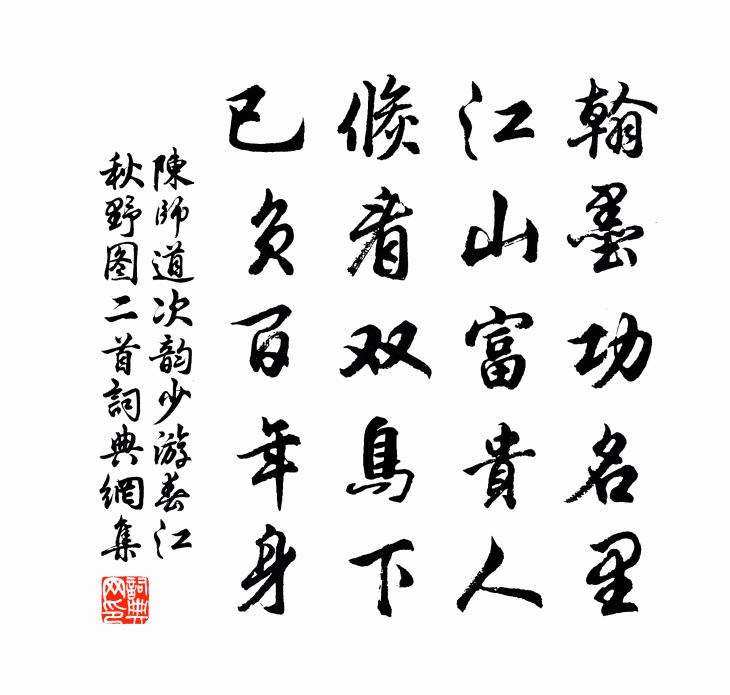 翰墨功名里
江山富貴人
倐看双鳥下
已负百年身
陳師道次韵少游春江
秋野图二首詞典網集
詞典
网印